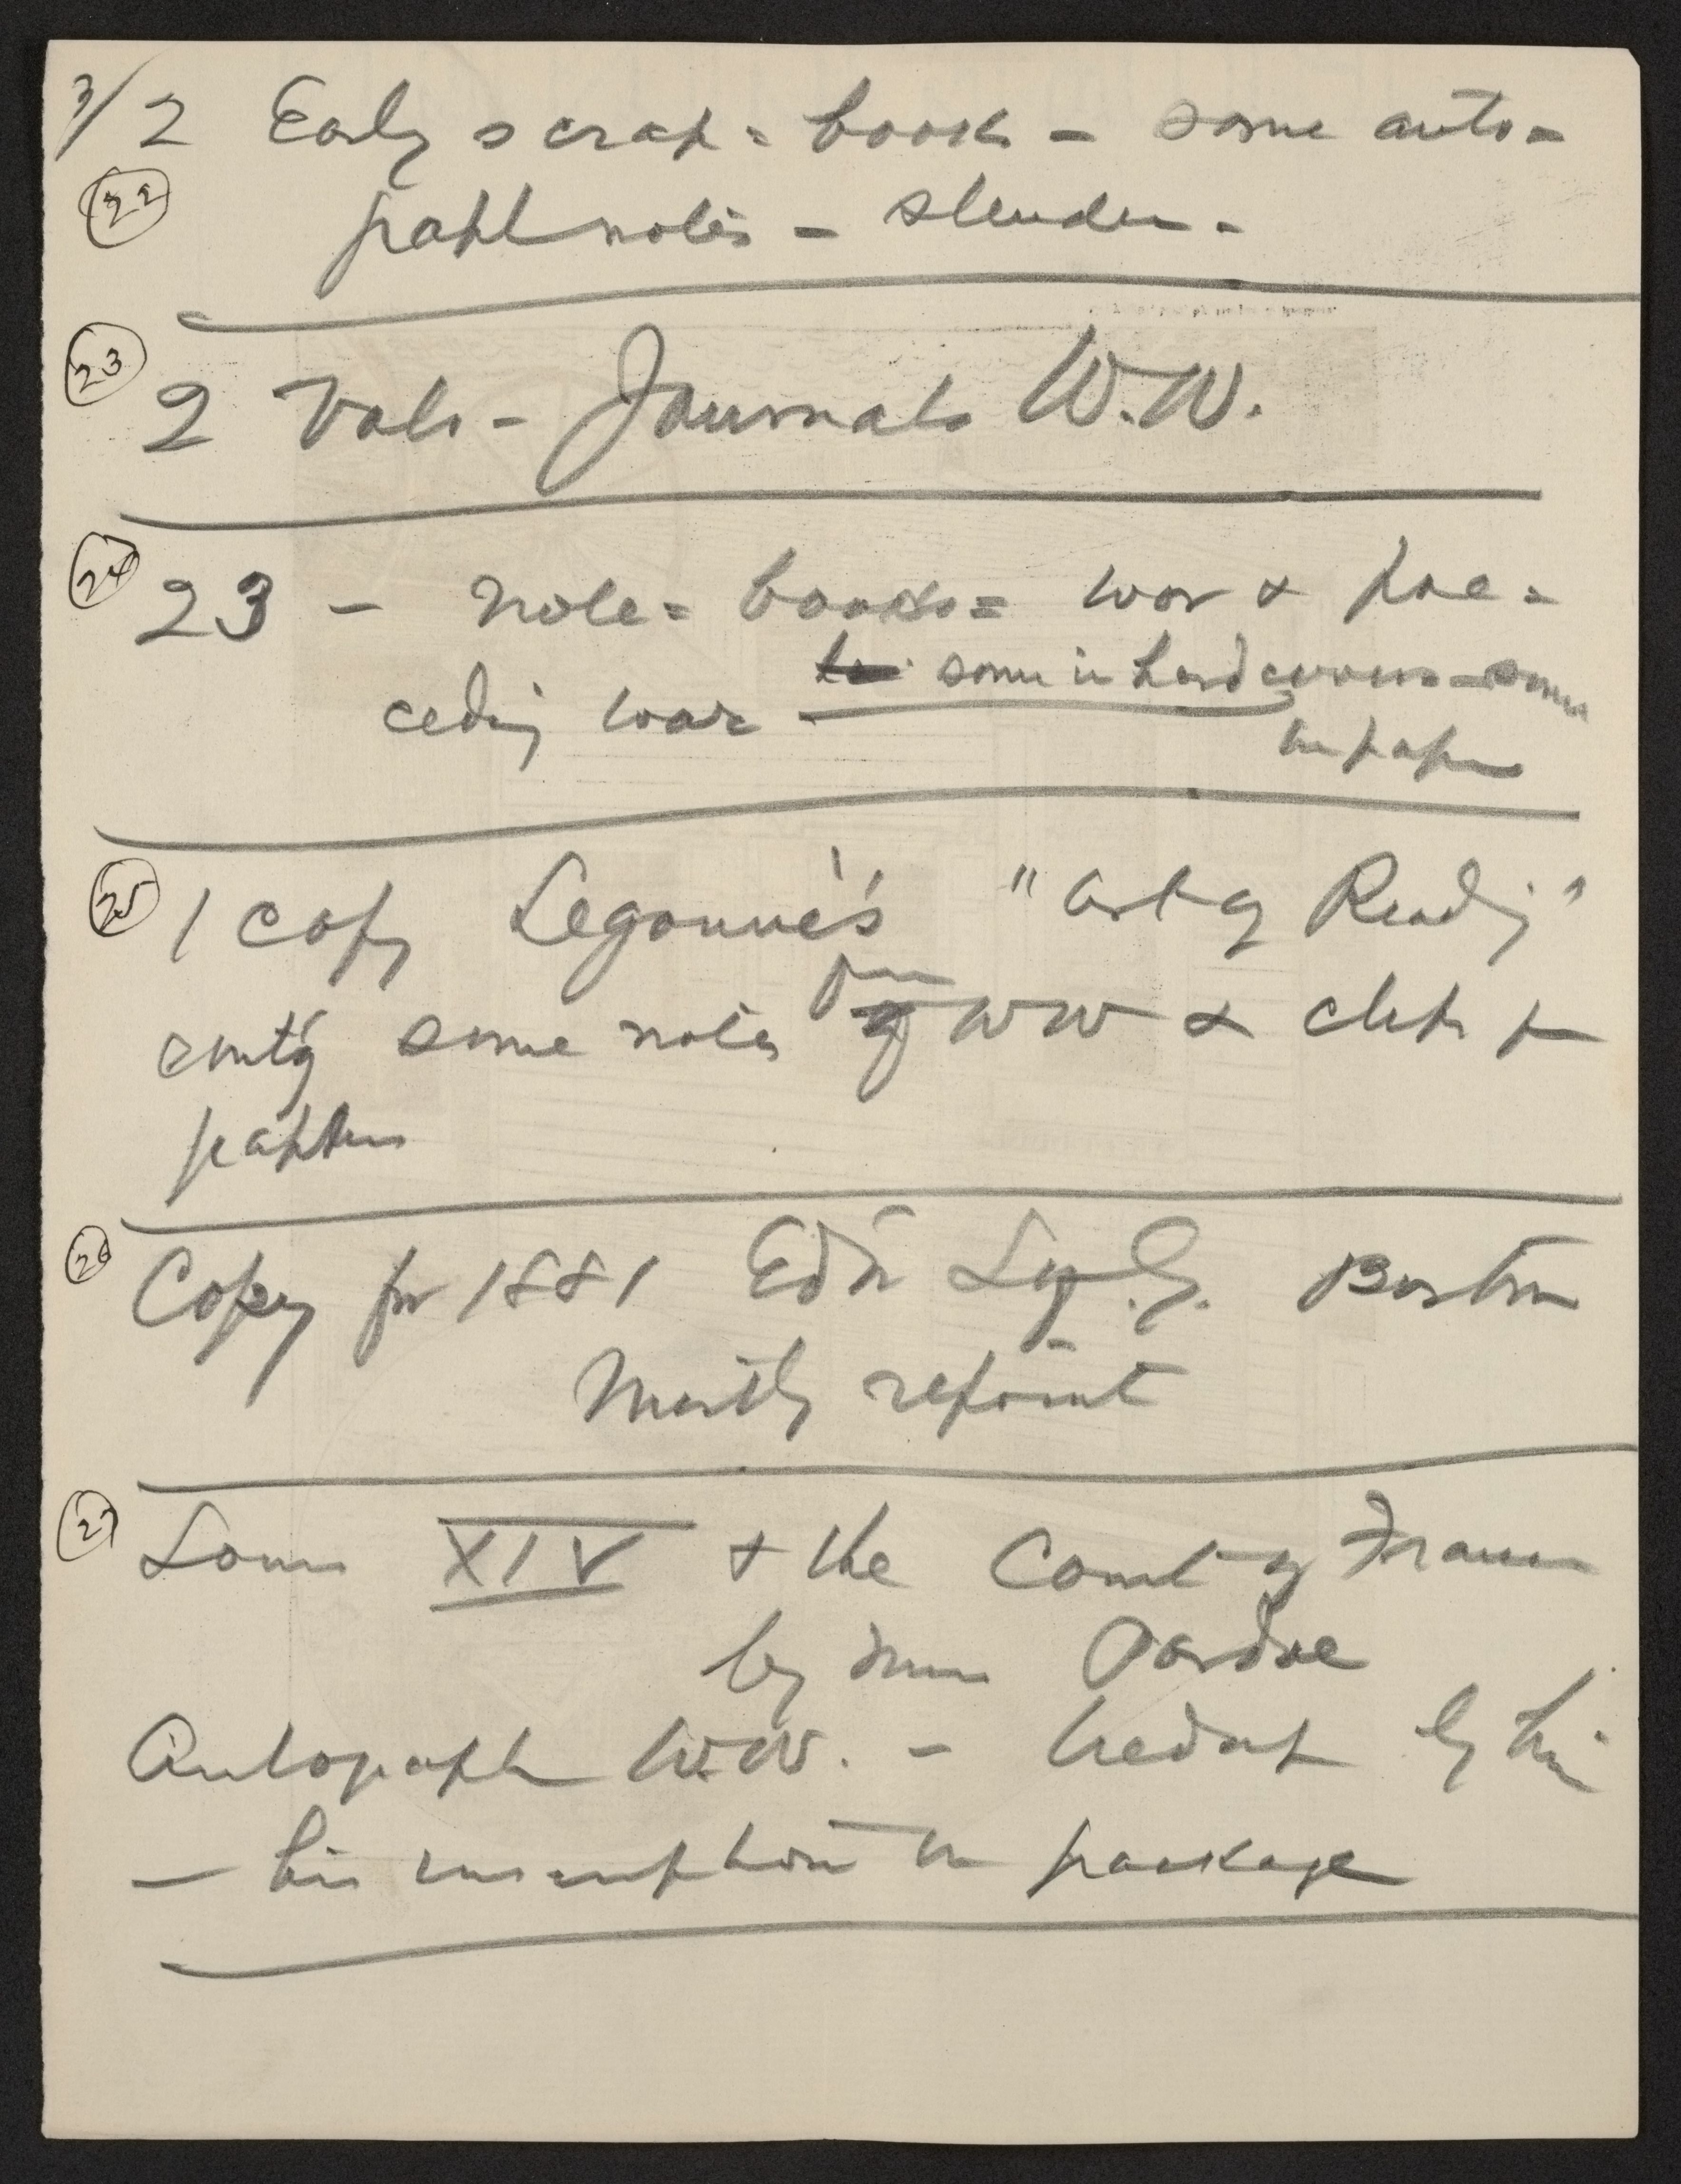 3/ 2 Early scrap = book - some auto =
(22) graph notes - slender -
(23)
2 Vols - Journals W.W.
(24)
23 - note = books = war & pre =
some in hard covers - some
ceding war
in paper
(25) 1 copy Legouvé's "Art of Reading"
from
cont'g some notes of WW & clips &
papers
(26)
Copy for 1881 Ed'n L of G. Boston
Mostly reprint
(27)
Louis XIV & the Court of France
by Miss Pardoe
Autograph W.W. - tied up by him
- his inscription on package